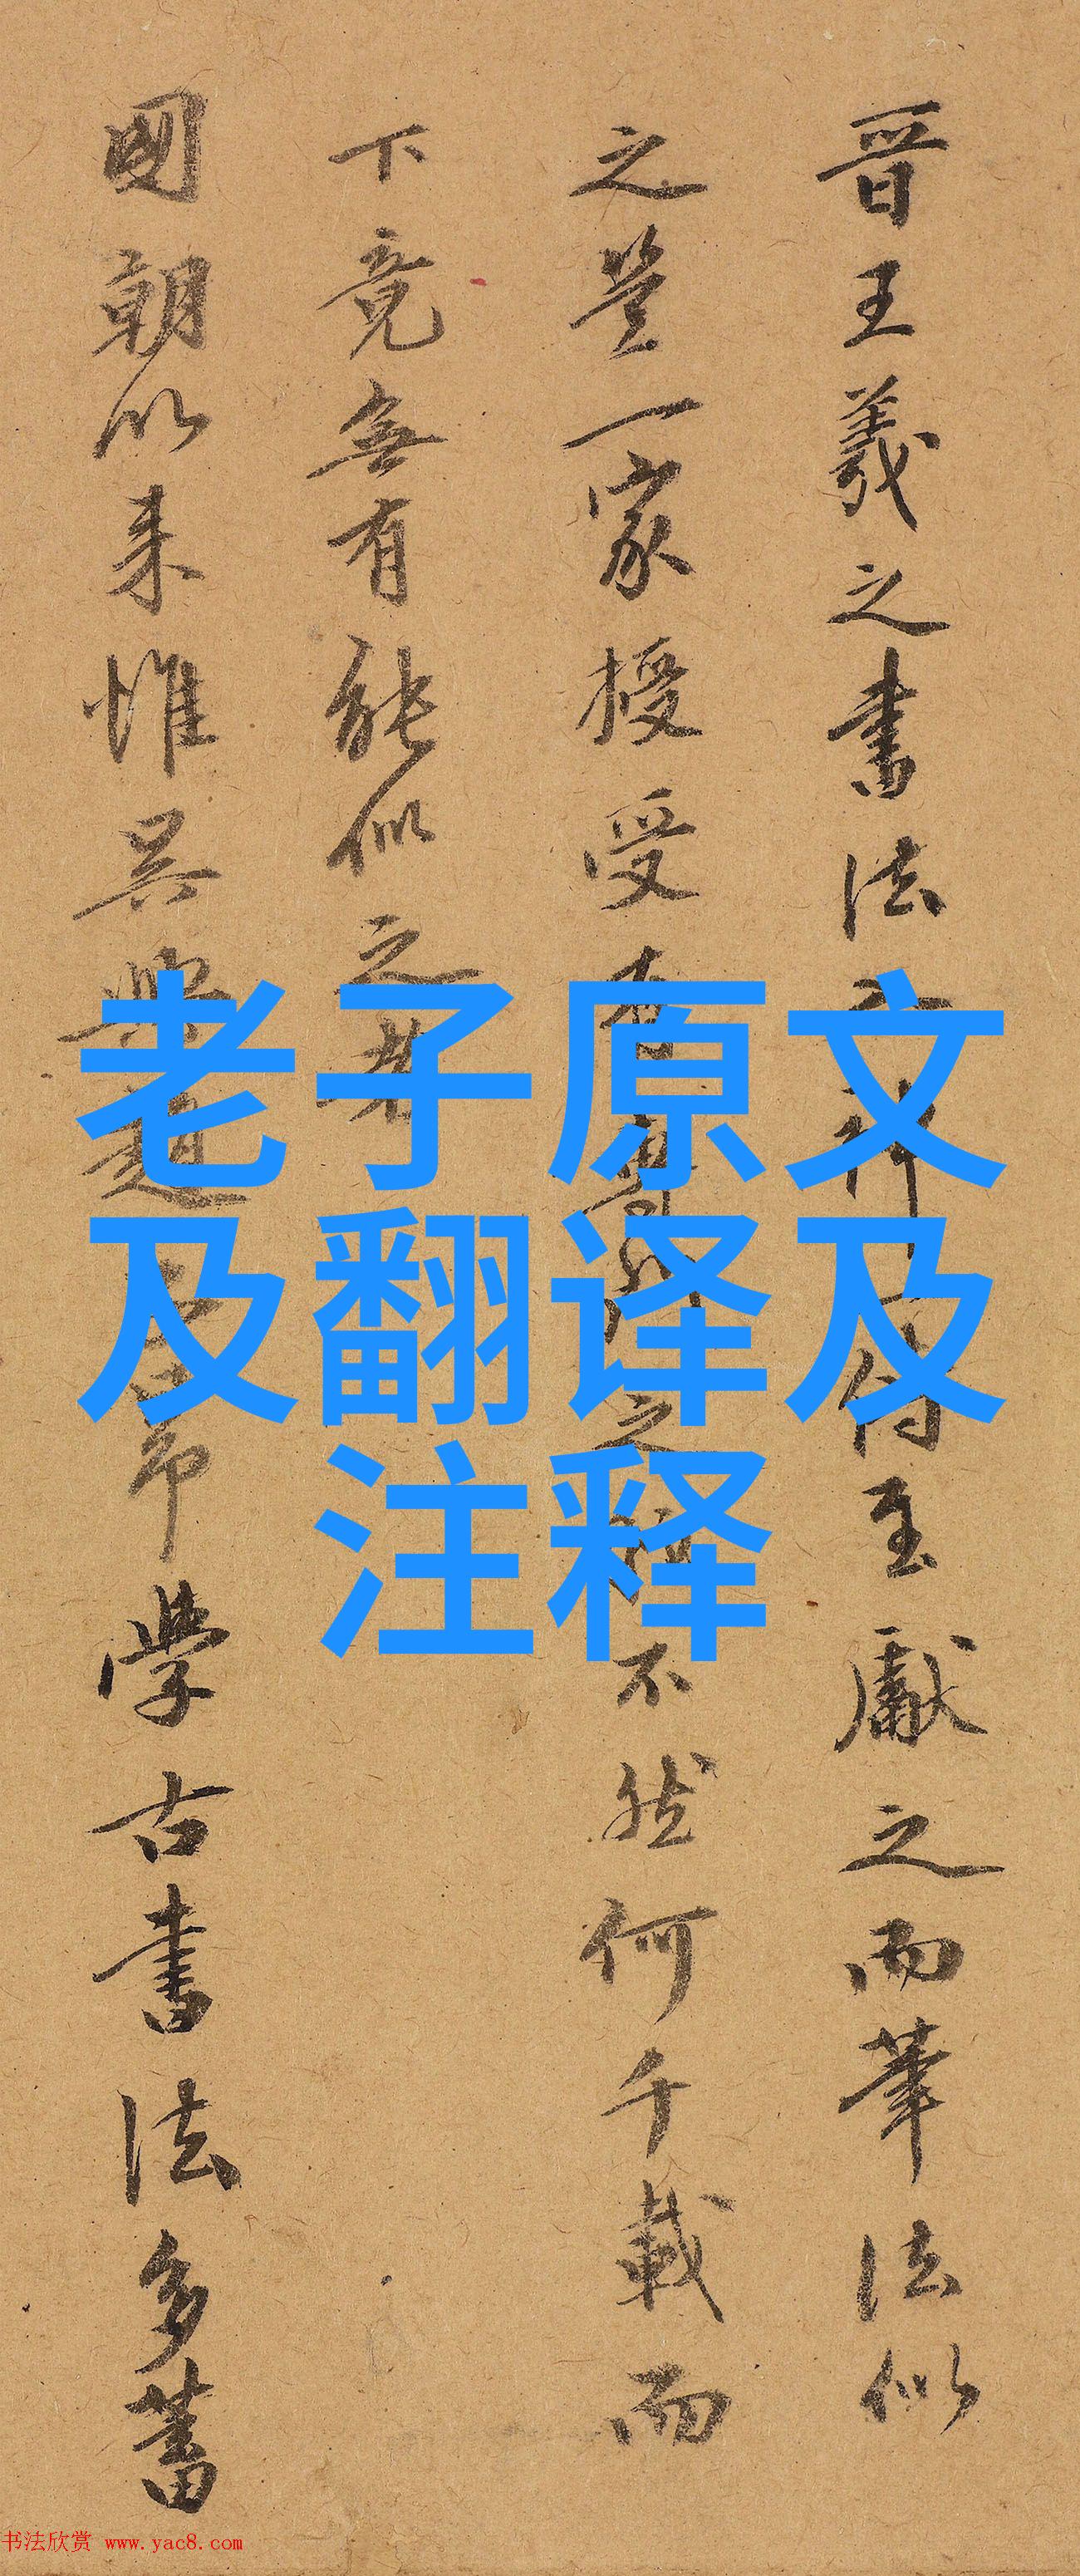 晋王羲之书法
至献之而笔法似
之岂一家授受
之
不然何千载而
下竟无有能似之者
國朝以来惟吴興趙
学古书法多蓄
老子原文
及翻译及
注释
书法欣赏 www.yac8.com